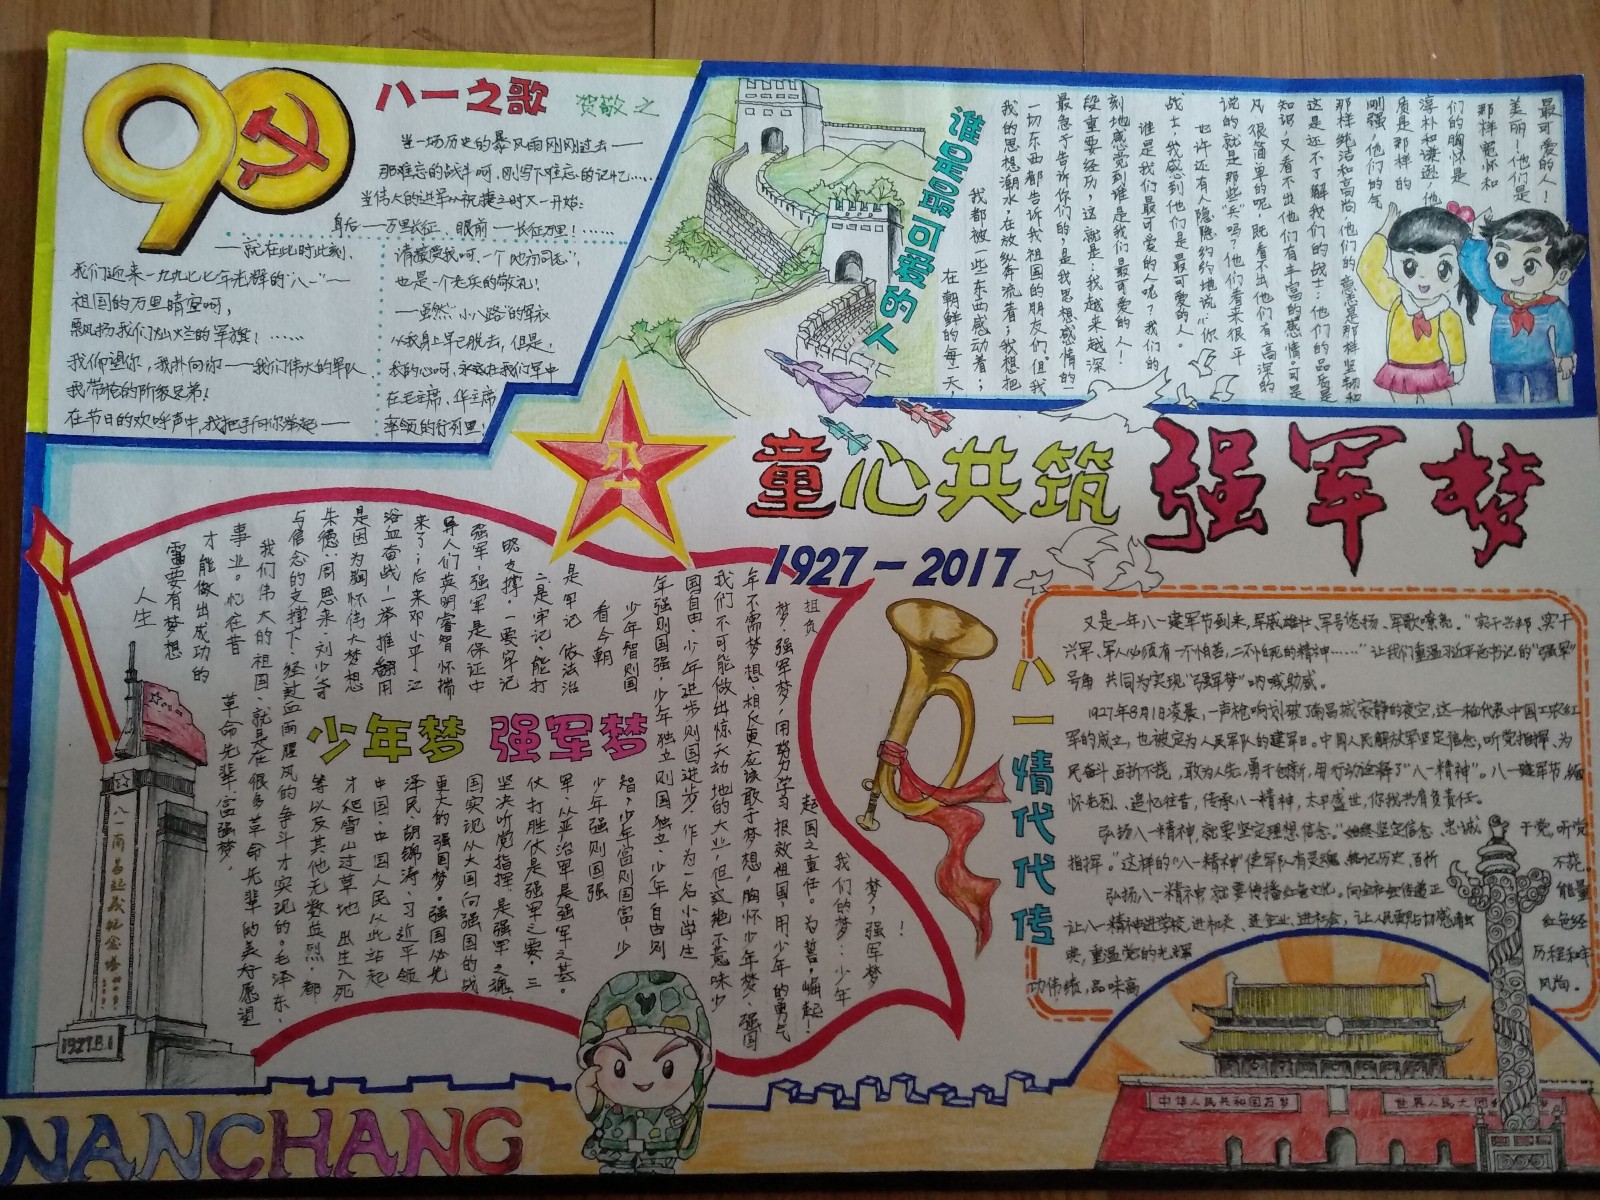 90
八一之歌
贺敬之
当一场历史的暴风雨刚刚过去——
那难忘的战斗呵,刚写下难忘的记忆……
当伟大的进军
又一开始:
身后——万里长征,眼前——长征万里!……
——就在此时此刻,
我们迎来一九七七年光辉的"八一"——
祖国的万里晴空呵,
飘扬我们
的军旗!……
我仰望你,我扑向你——我们伟大的军队,
我带枪的阶级兄弟!
在节日的欢呼声中,我把手向你举起——
请接受我呵,一个"地方同志",
也是一个老兵的敬礼!
——虽然"小八路"的军衣
从我身上早已脱去,但是,
我的心呵,永远在我们军中
在毛主席、华主席
率领的行列里!
谁是最可爱的人
在朝鲜的每一天,
我都被一些东西感动着;
我的思想潮水,在放纵奔流着;我想把
一切东西都告诉我祖国的朋友们。但我
最急于告诉你们的,是我思想感情的一
段重要经历,这就是:我越来越深
刻地感觉到谁是我们最可爱的人!
谁是我们最可爱的人呢?我们的
战士,我感到他们是最可爱的人。
也许还有人隐隐约约地说:你
说的就是那些"兵"吗?他们看来很平
凡,很简单的呢,既看不出他们有高深的
知识,又看不出他们有丰富的感情。可是
这是还不了解我们的战士:他们的品质是
那样纯洁和高尚,他们的意志是那样坚韧和
刚强,他们的气
质是那样的
淳朴和谦逊,他
们的胸怀是
那样宽怀和
美丽!他们是
最可爱的人!
八一
童心共筑强军梦
1927-2017
少年梦 强军梦
人生
需要有梦想
才能做出成功的
事业。忆往昔
革命先辈富强梦。
我们伟大的祖国,就是在很多革命先辈的美好愿望
与信念的支撑下,经过血雨腥风的争斗才实现的。毛泽东、
朱德、周恩来、刘少奇等以及其他无数英烈,都
是因为胸怀伟大梦想,才爬雪山过草地,出生入死,
浴血奋战,一举推翻旧中国,中国人民从此站起
来了;后来邓小平、江泽民、胡锦涛、习近平领
导人们英明睿智,怀揣重大的强国梦。强国必先
强军,强军是保证中国实现从大国向强国的战
略支撑。一要牢记坚决听党指挥是强军之魂,
二是牢记能打仗打胜仗是强军之要,三
是牢记依法治军从严治军是强军之基。
看今朝
少年强则国强
少年智则国智,少年富则国富,少
年强则国强,少年独立则国独立,少年自由则
国自由,少年进步则国进步。作为一名小学生
我们不可能做出惊天动地的大业,但这绝不意味少
年不需梦想,相反更应该敢于梦想,胸怀少年梦、强国
梦、强军梦,用努力学习报效祖国,用少年的勇气
担负起国之重任。为誓,崛起!
我们的梦:少年
梦,强军梦
!
八一南昌起义纪念塔
1927.8.1
八一情代代传
又是一年八一建军节到来,军威雄壮,军号悠扬,军歌嘹亮。"实干兴邦,实干
兴军,军人必须有一不怕苦,二不怕死的精神……"让我们重温习近平总书记的"强军"
号角,共同为实现"强军梦"呐喊助威。
1927年8月1日凌晨,一声枪响划破了南昌城寂静的夜空,这一枪代表中国工农红
军的成立,也被定为人民军队的建军日。中国人民解放军坚定信念,听党指挥、为
民奋斗,百折不挠,敢为人先,勇于创新,用行动诠释了"八一精神"。八一建军节,缅
怀先烈、追忆往昔,传承八一精神,太平盛世,你我共有负责任。
弘扬八一精神,就要坚定理想信念。"始终坚定信念,忠诚于党,听党
指挥。"这样的"八一精神"使军队有灵魂,铭记历史,百折不挠
弘扬八一精神,就要传播红色文化。向全社会传递正能量
让八一精神进学校,进机关、进企业,进社会,让人民更贴切感悟出红色经
典,重温党的光辉历程和丰
功伟绩,品味高风尚。
中华人民共和国万岁
世界人民大团
NANCHANG